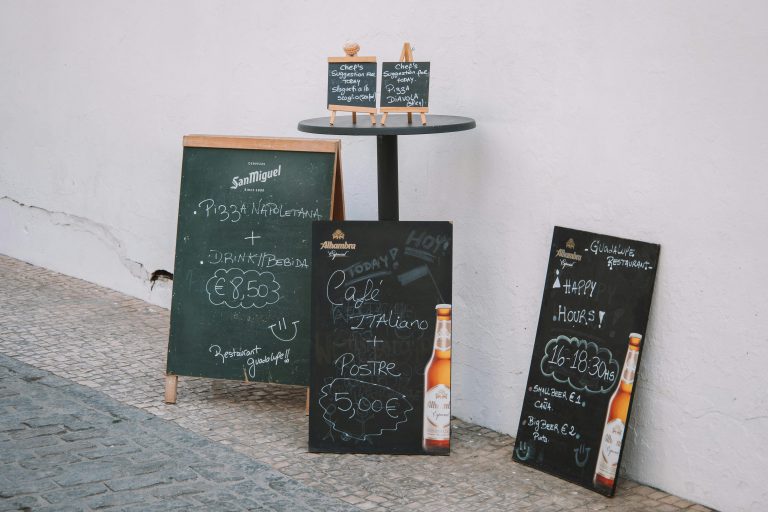 Chef's
Suggestion for
TODAY
Spaghetti allo
scoglio (seafood)
Chef's
Suggestion for
TODAY.
Pizza
DIAVOLA
(spicy)
CERVEZAS
San Miguel
SINCE 1890
. PIZZA NAPOLETANA
+
. DRINK // BEBIDA
€ 8,50
Restaurant
Guadalupe!!
Alhambra
Especial
TODAY! HOY!
Café
ITALIANO
+
POSTRE
5,00€
Alhambra
Especial
GUADALUPE
RESTAURANT
HAPPY
HOURS!
16-18:30HS
. SMALL BEER € 1.
CAÑA.
. BIG BEER € 2.